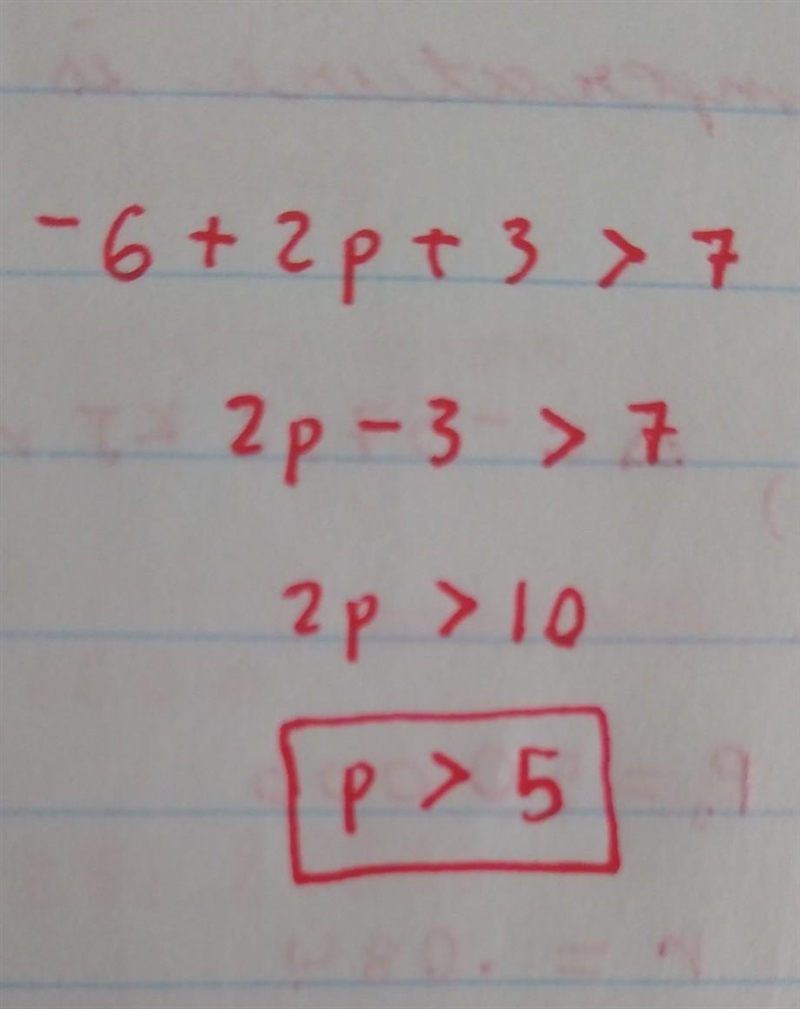 -6 + 2p + 3 > 7
2p - 3 > 7
2p > 10
p > 5